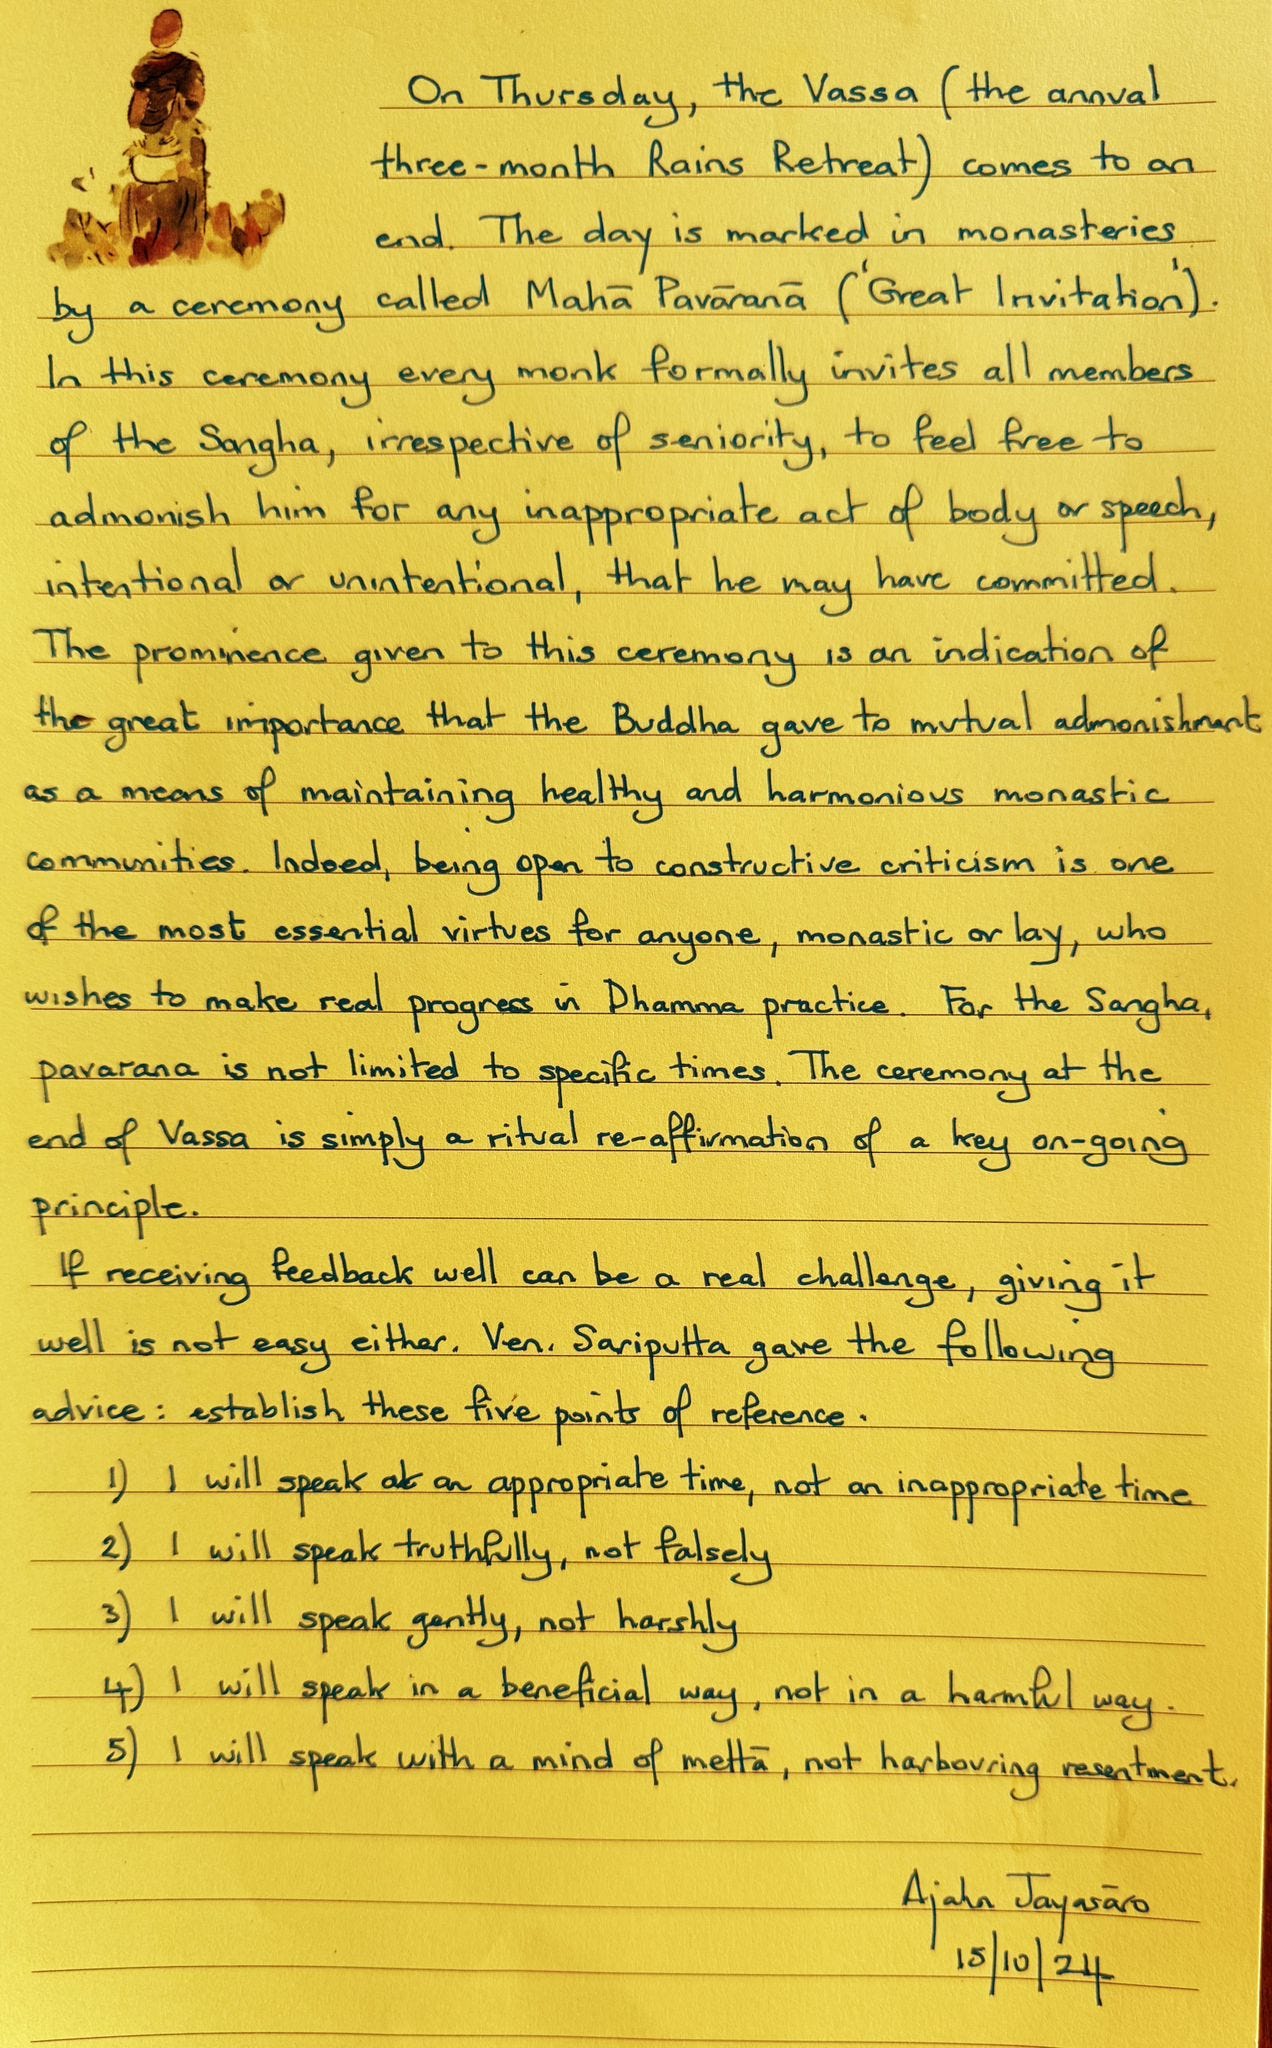 On Thursday, the Vassa (the annual
three-month Rains Retreat) comes to an
end. The day is marked in monasteries
by a ceremony called Mahā Pavāranā ('Great Invitation').
In this ceremony every monk formally invites all members
of the Sangha, irrespective of seniority, to feel free to
admonish him for any inappropriate act of body or speech,
intentional or unintentional, that he may have committed.
The prominence given to this ceremony is an indication of
the great importance that the Buddha gave to mutual admonishment
as a means of maintaining healthy and harmonious monastic
communities. Indeed, being open to constructive criticism is one
of the most essential virtues for anyone, monastic or lay, who
wishes to make real progress in Dhamma practice. For the Sangha,
pavarana is not limited to specific times. The ceremony at the
end of Vassa is simply a ritual re-affirmation of a key on-going
principle.
If receiving feedback well can be a real challenge, giving it
well is not easy either. Ven. Sariputta gave the following
advice: establish these five points of reference.
1) I will speak at an appropriate time, not an inappropriate time
2) I will speak truthfully, not falsely
3) I will speak gently, not harshly
4) I will speak in a beneficial way, not in a harmful way.
5) I will speak with a mind of mettā, not harbouring resentment.
Ajahn Jayasāro
15/10/24